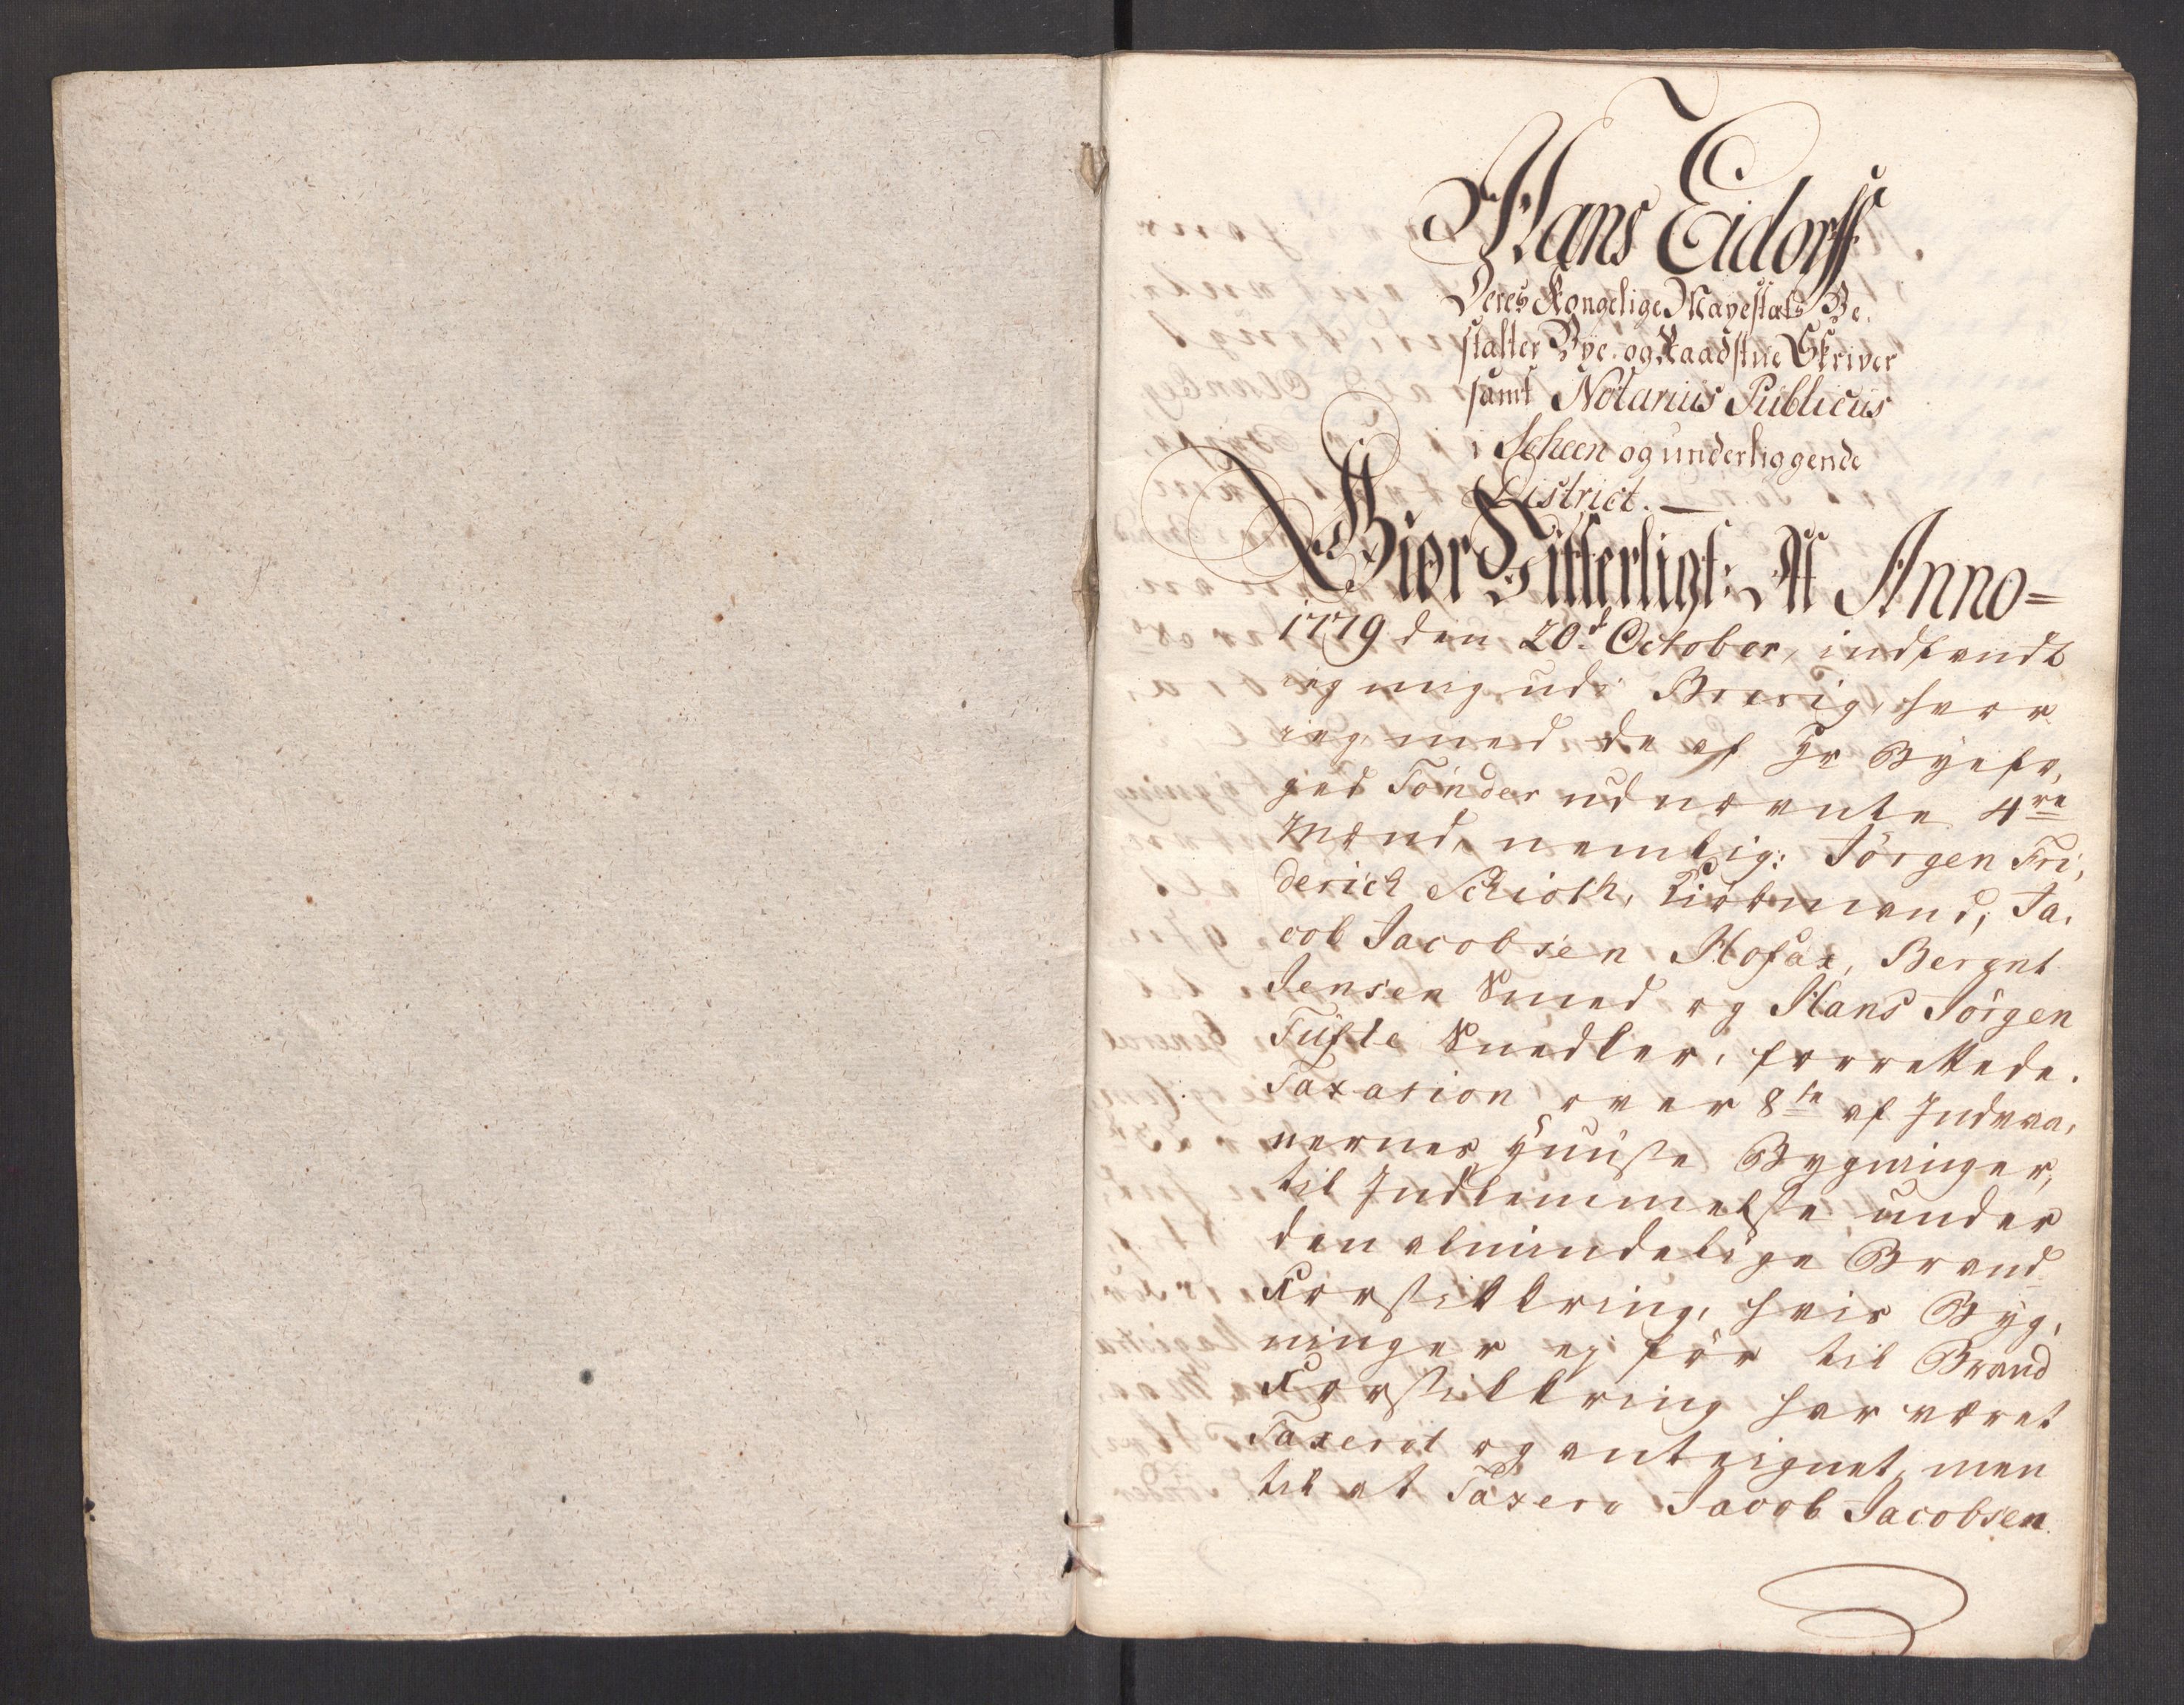 Hans Eidorff
Deres Kongelige Mayestæts Be-
stalter Bye- og Raadstue Skriver
samt Notarius Publicus
i Scheen og underliggende
District.
Giør Vitterligt: At Anno=
1779 den 20d October, indfandt
jeg mig udi Brevig, hvor
jeg med de af Hr Byefo-
ged Tønder udnævnte 4re
Mænd, nemlig: Jörgen Fri-
derich Schiöth, Kiöbmand, Ja-
cob Jacobsen Hofax, Berent
Jensen Smed og Hans Jörgen
Tufte Snedker, forrettede
Taxasion over 8te af Indvaa-
nernes Huuse Bygninger,
til Indlemmelse under
den almindelige Brand
Forsikkring, hvis Byg-
ninger ej för til Brand
Forsikkring har været
Taxerit og anteignet, men
til at Taxere Jacob Jacobsen